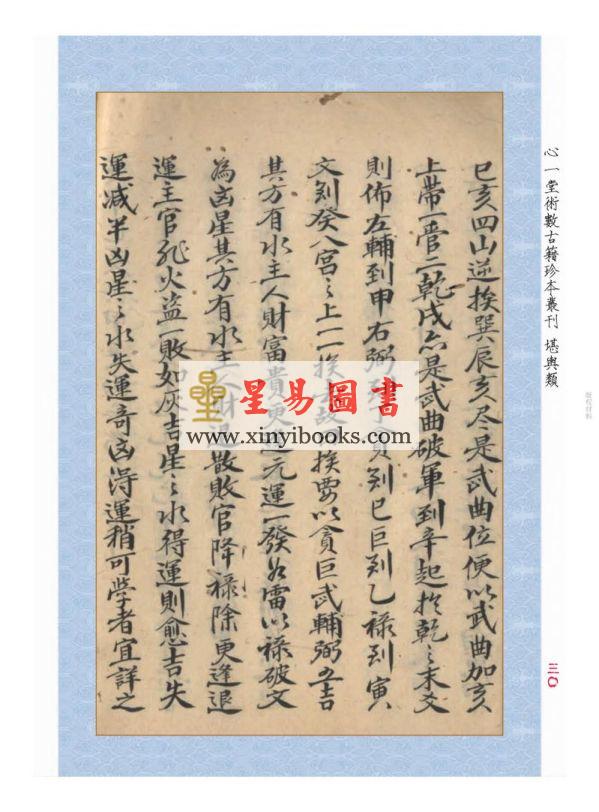 心一堂術數古籍珍本叢刊 堪輿類
三〇
巳亥四山逆挨巽辰亥尽是武曲位便以武曲加亥
上帶一管二乾戌亦是武曲破軍到辛起於乾之末爻
則佈左輔到申右弼到丁貪到巳巨到乙祿到寅
文到癸八宮之上一一挨 挨要以貪巨武輔弼五吉
其方有水主人財富貴更 元運一發如雷以祿破文
為凶星其方有水主人財退散敗官降祿除更逢退
運主官非火盜一敗如灰吉星之水得運則愈吉失
運減半凶星之水失運奇凶淂運稍可學者宜詳之
星易圖書
www.xinyibooks.com